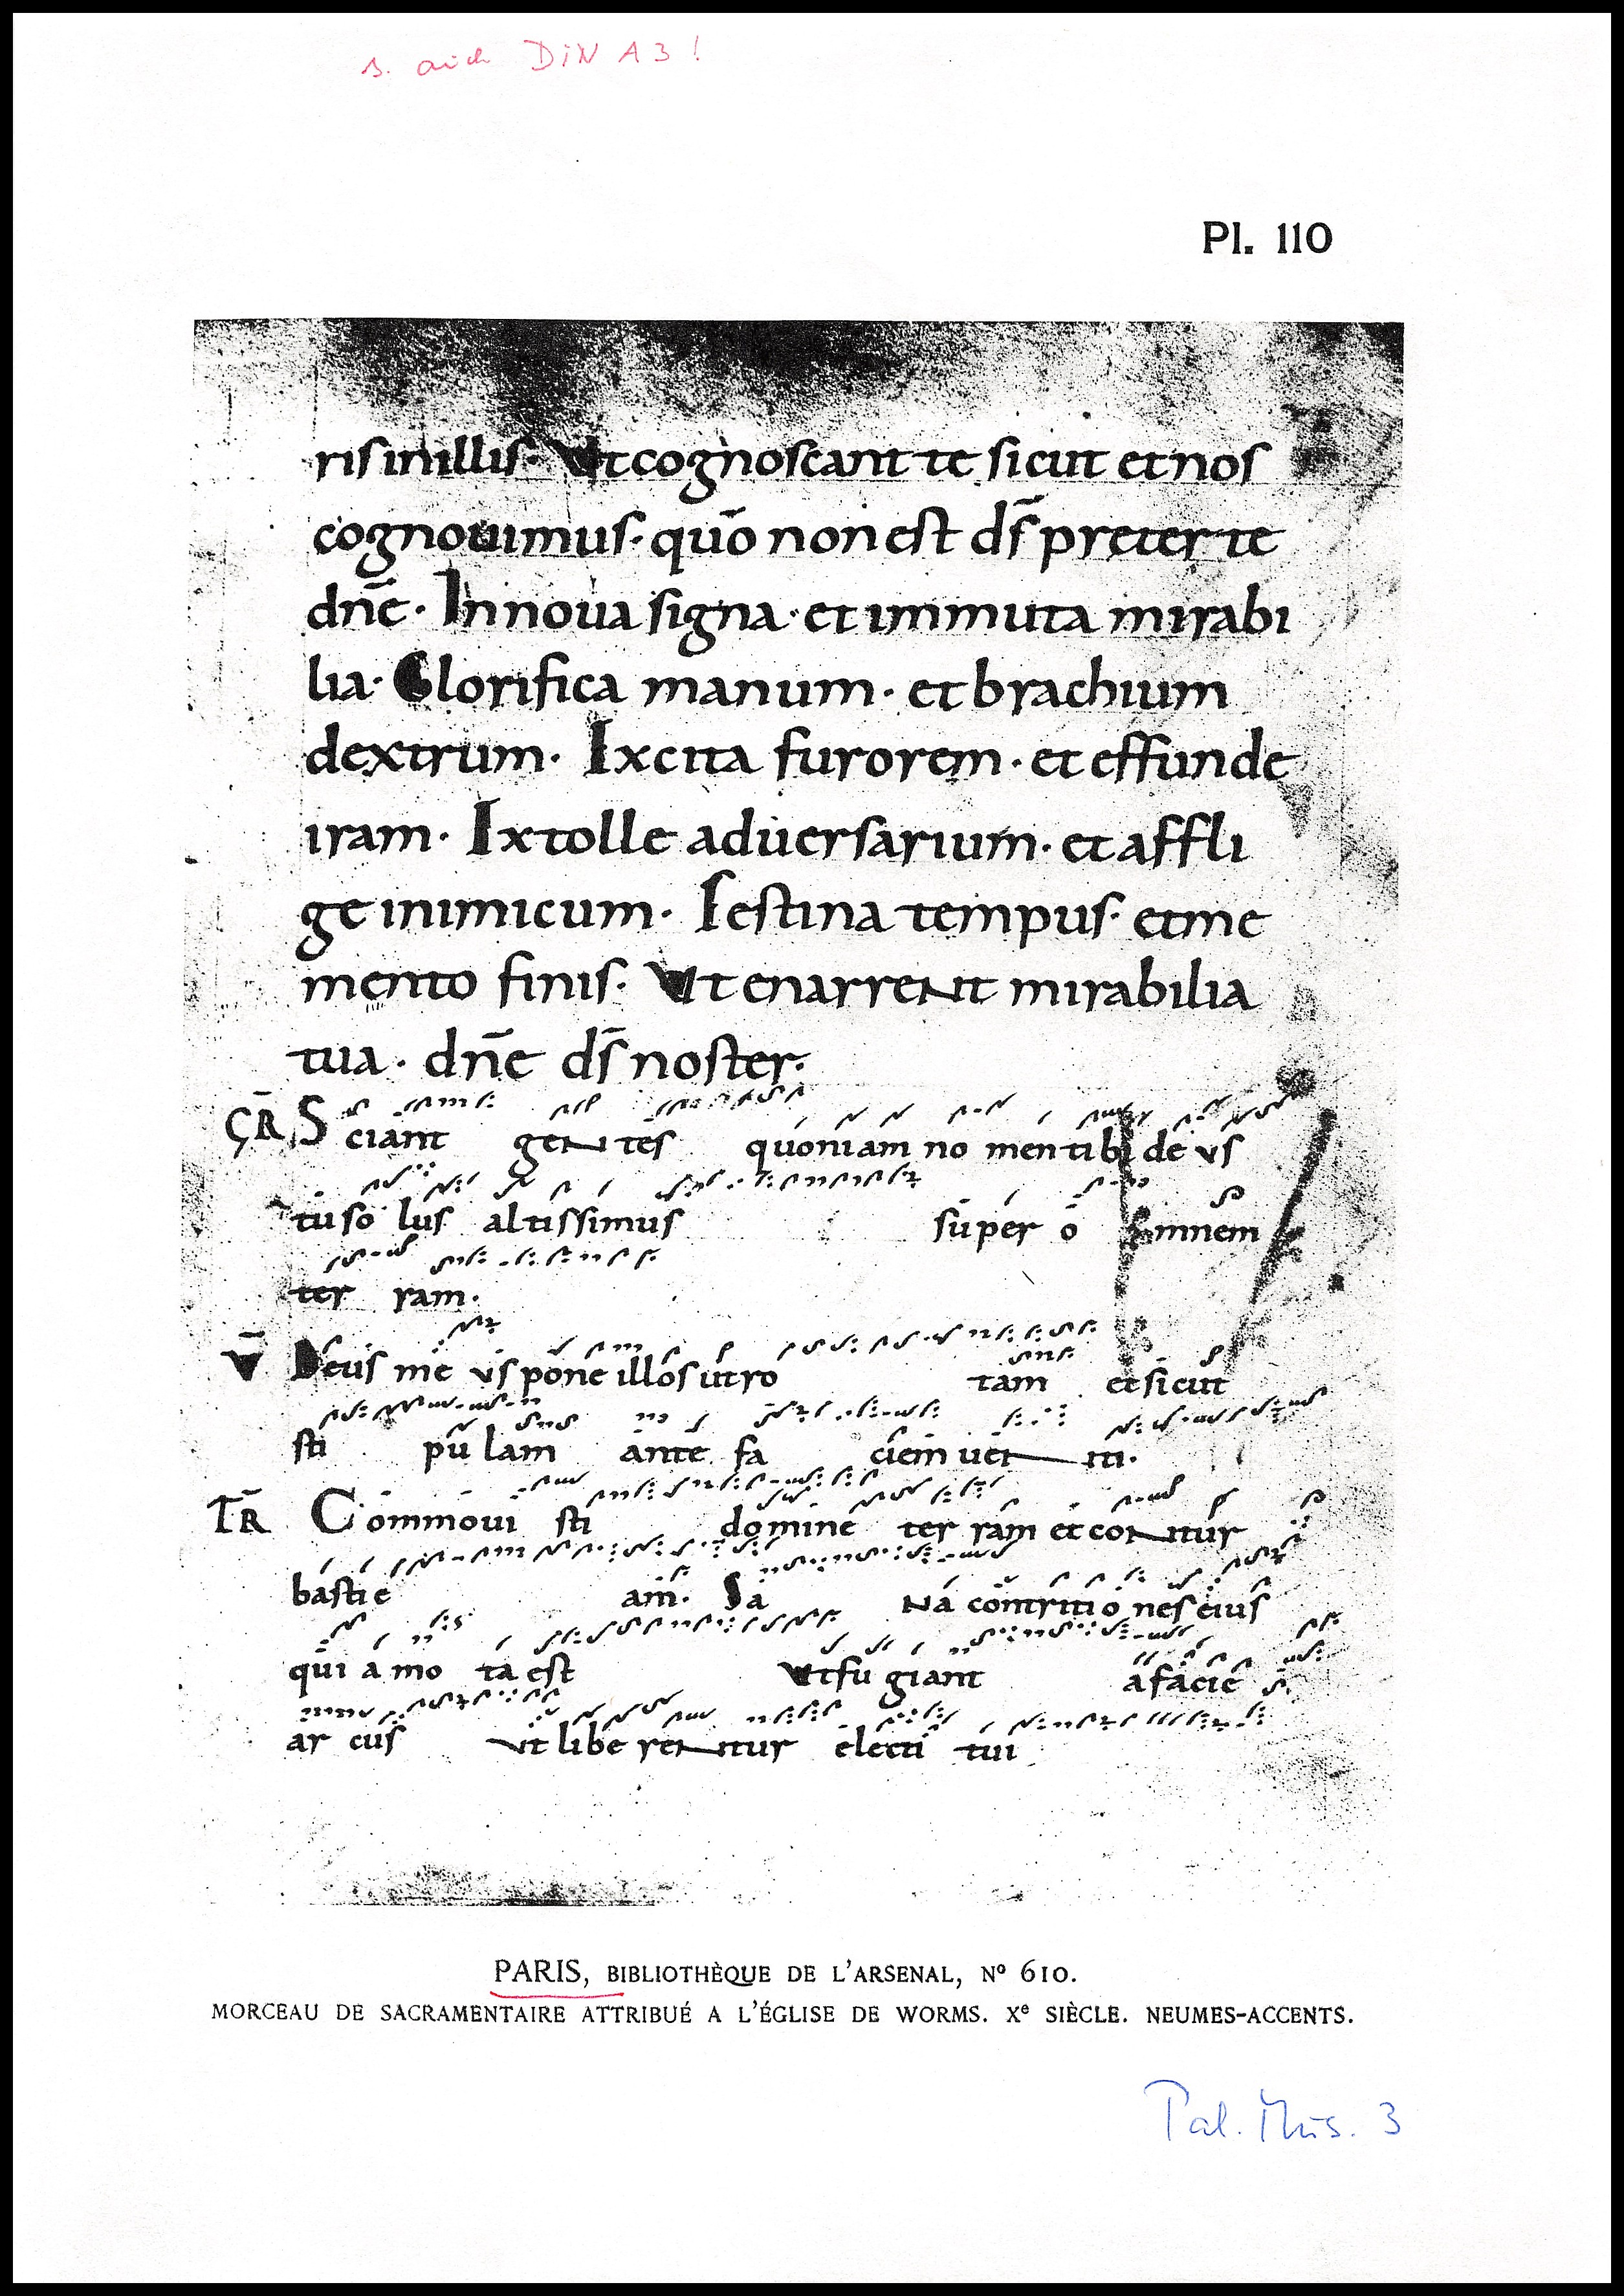 s. auch DIN A3!
Pl. 110
ris inillis· Ut cognoscant te sicut et nos
cognouimus· quō non est ds̄ preter te
dn̄e· Innoua signa· et immuta mirabi
lia· Glorifica manum· et brachium
dextrum· Ixcita furorem· et effunde
iram· Ixtolle aduersarium· et affli
ge inimicum· Iestina tempus· et me
mento finis· Ut enarrent mirabilia
tua· dn̄e ds̄ noster·
GR̄ Sciant gentes quoniam no men tibi de us
tu so lus altissimus super o omnem
ter ram·
V̄ Deus me us pone illos ut ro tam et sicut
sti pu lam ante fa ciem uen ti·
TR̄ Commoui sti domine ter ram et con tur
basti e am· Sa na contriti o nes eius
qui a mo ta est Ut fu giant a facie
ar cus ut libe ren tur electi tui
PARIS, BIBLIOTHÈQUE DE L'ARSENAL, Nº 610.
MORCEAU DE SACRAMENTAIRE ATTRIBUÉ A L'ÉGLISE DE WORMS. Xᵉ SIÈCLE. NEUMES-ACCENTS.
Pal. Mus. 3